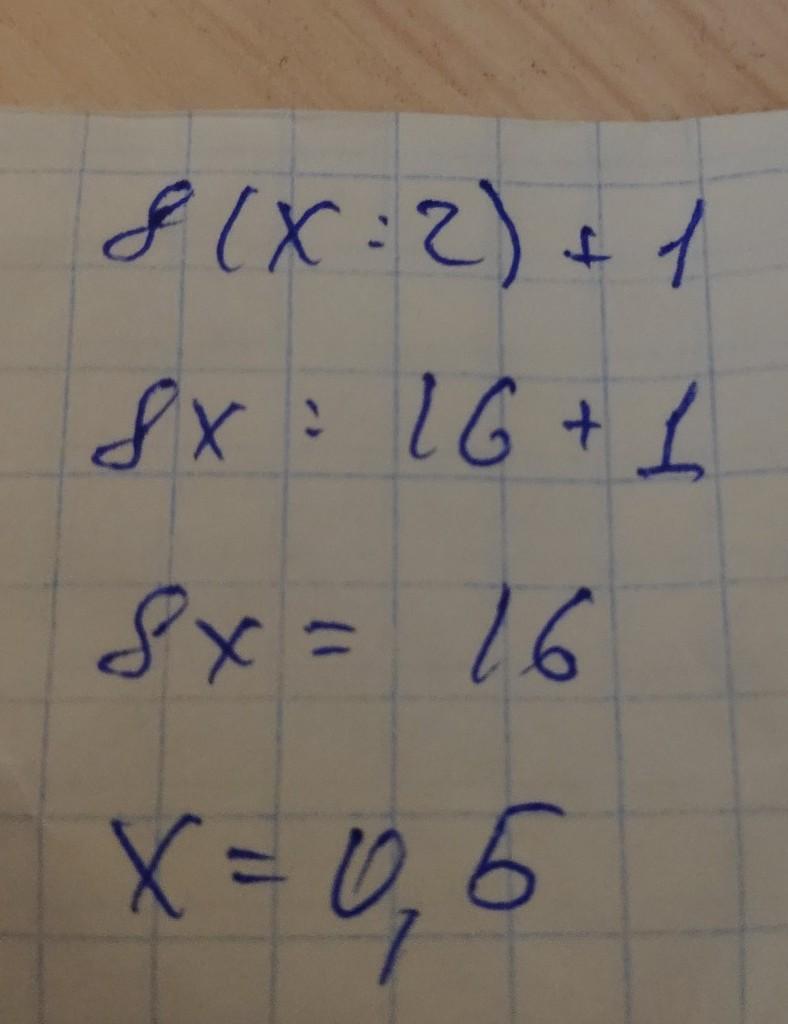 8(x:2)+1
8x:16+1
8x=16
x=0,5